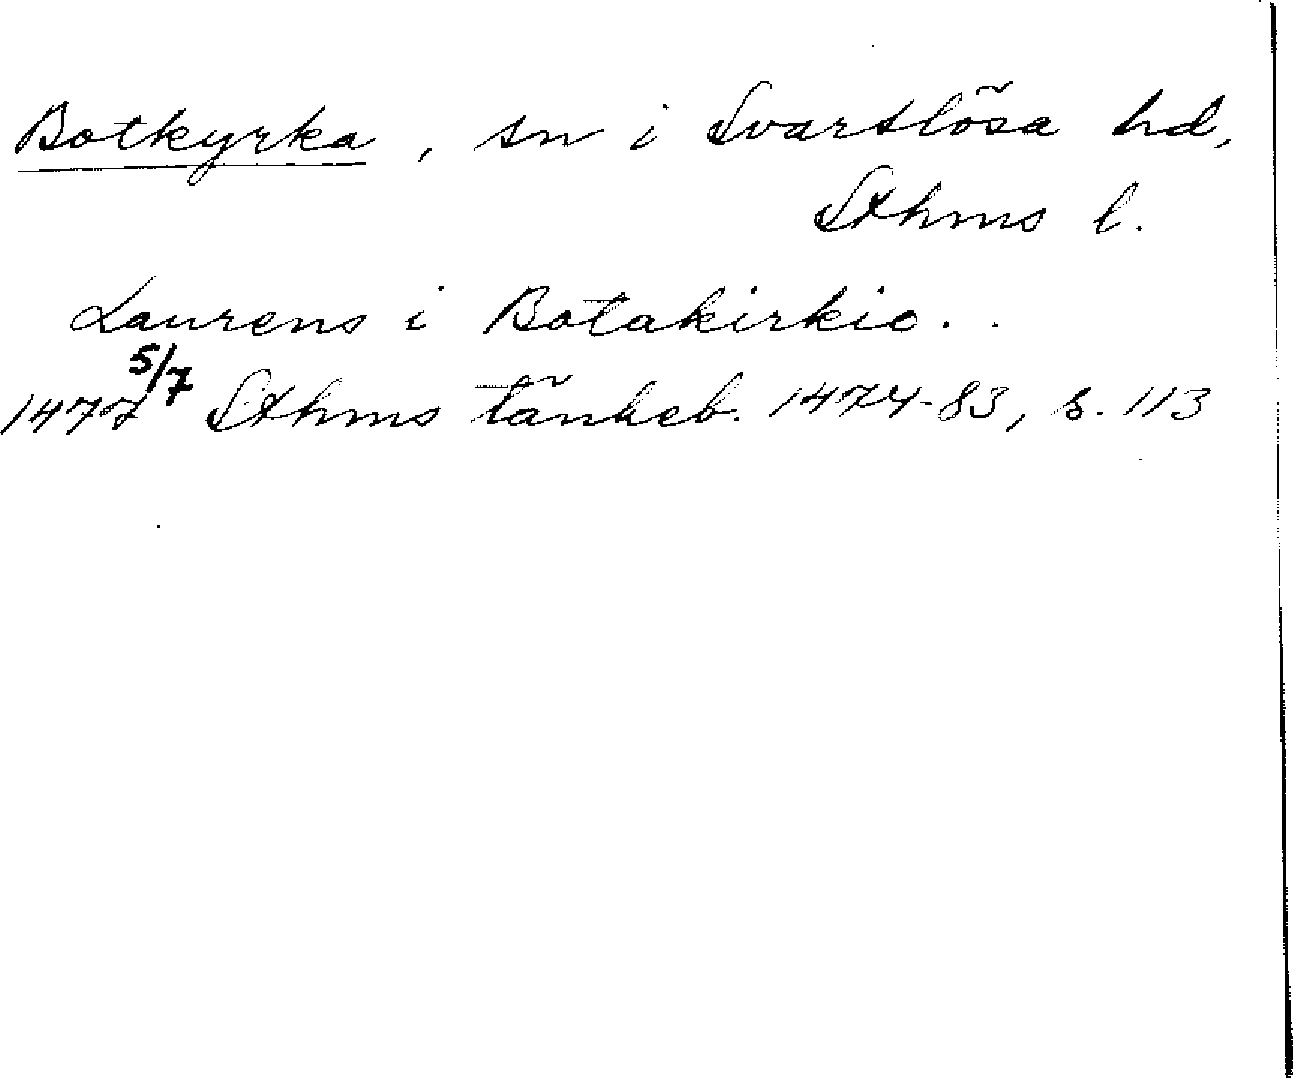 Botkyrka, sn i Svartlösa hd,
Sthms l.
Laurens i Botakirkio..
1477 5/7 Sthms tänkeb. 1474-83, s. 113